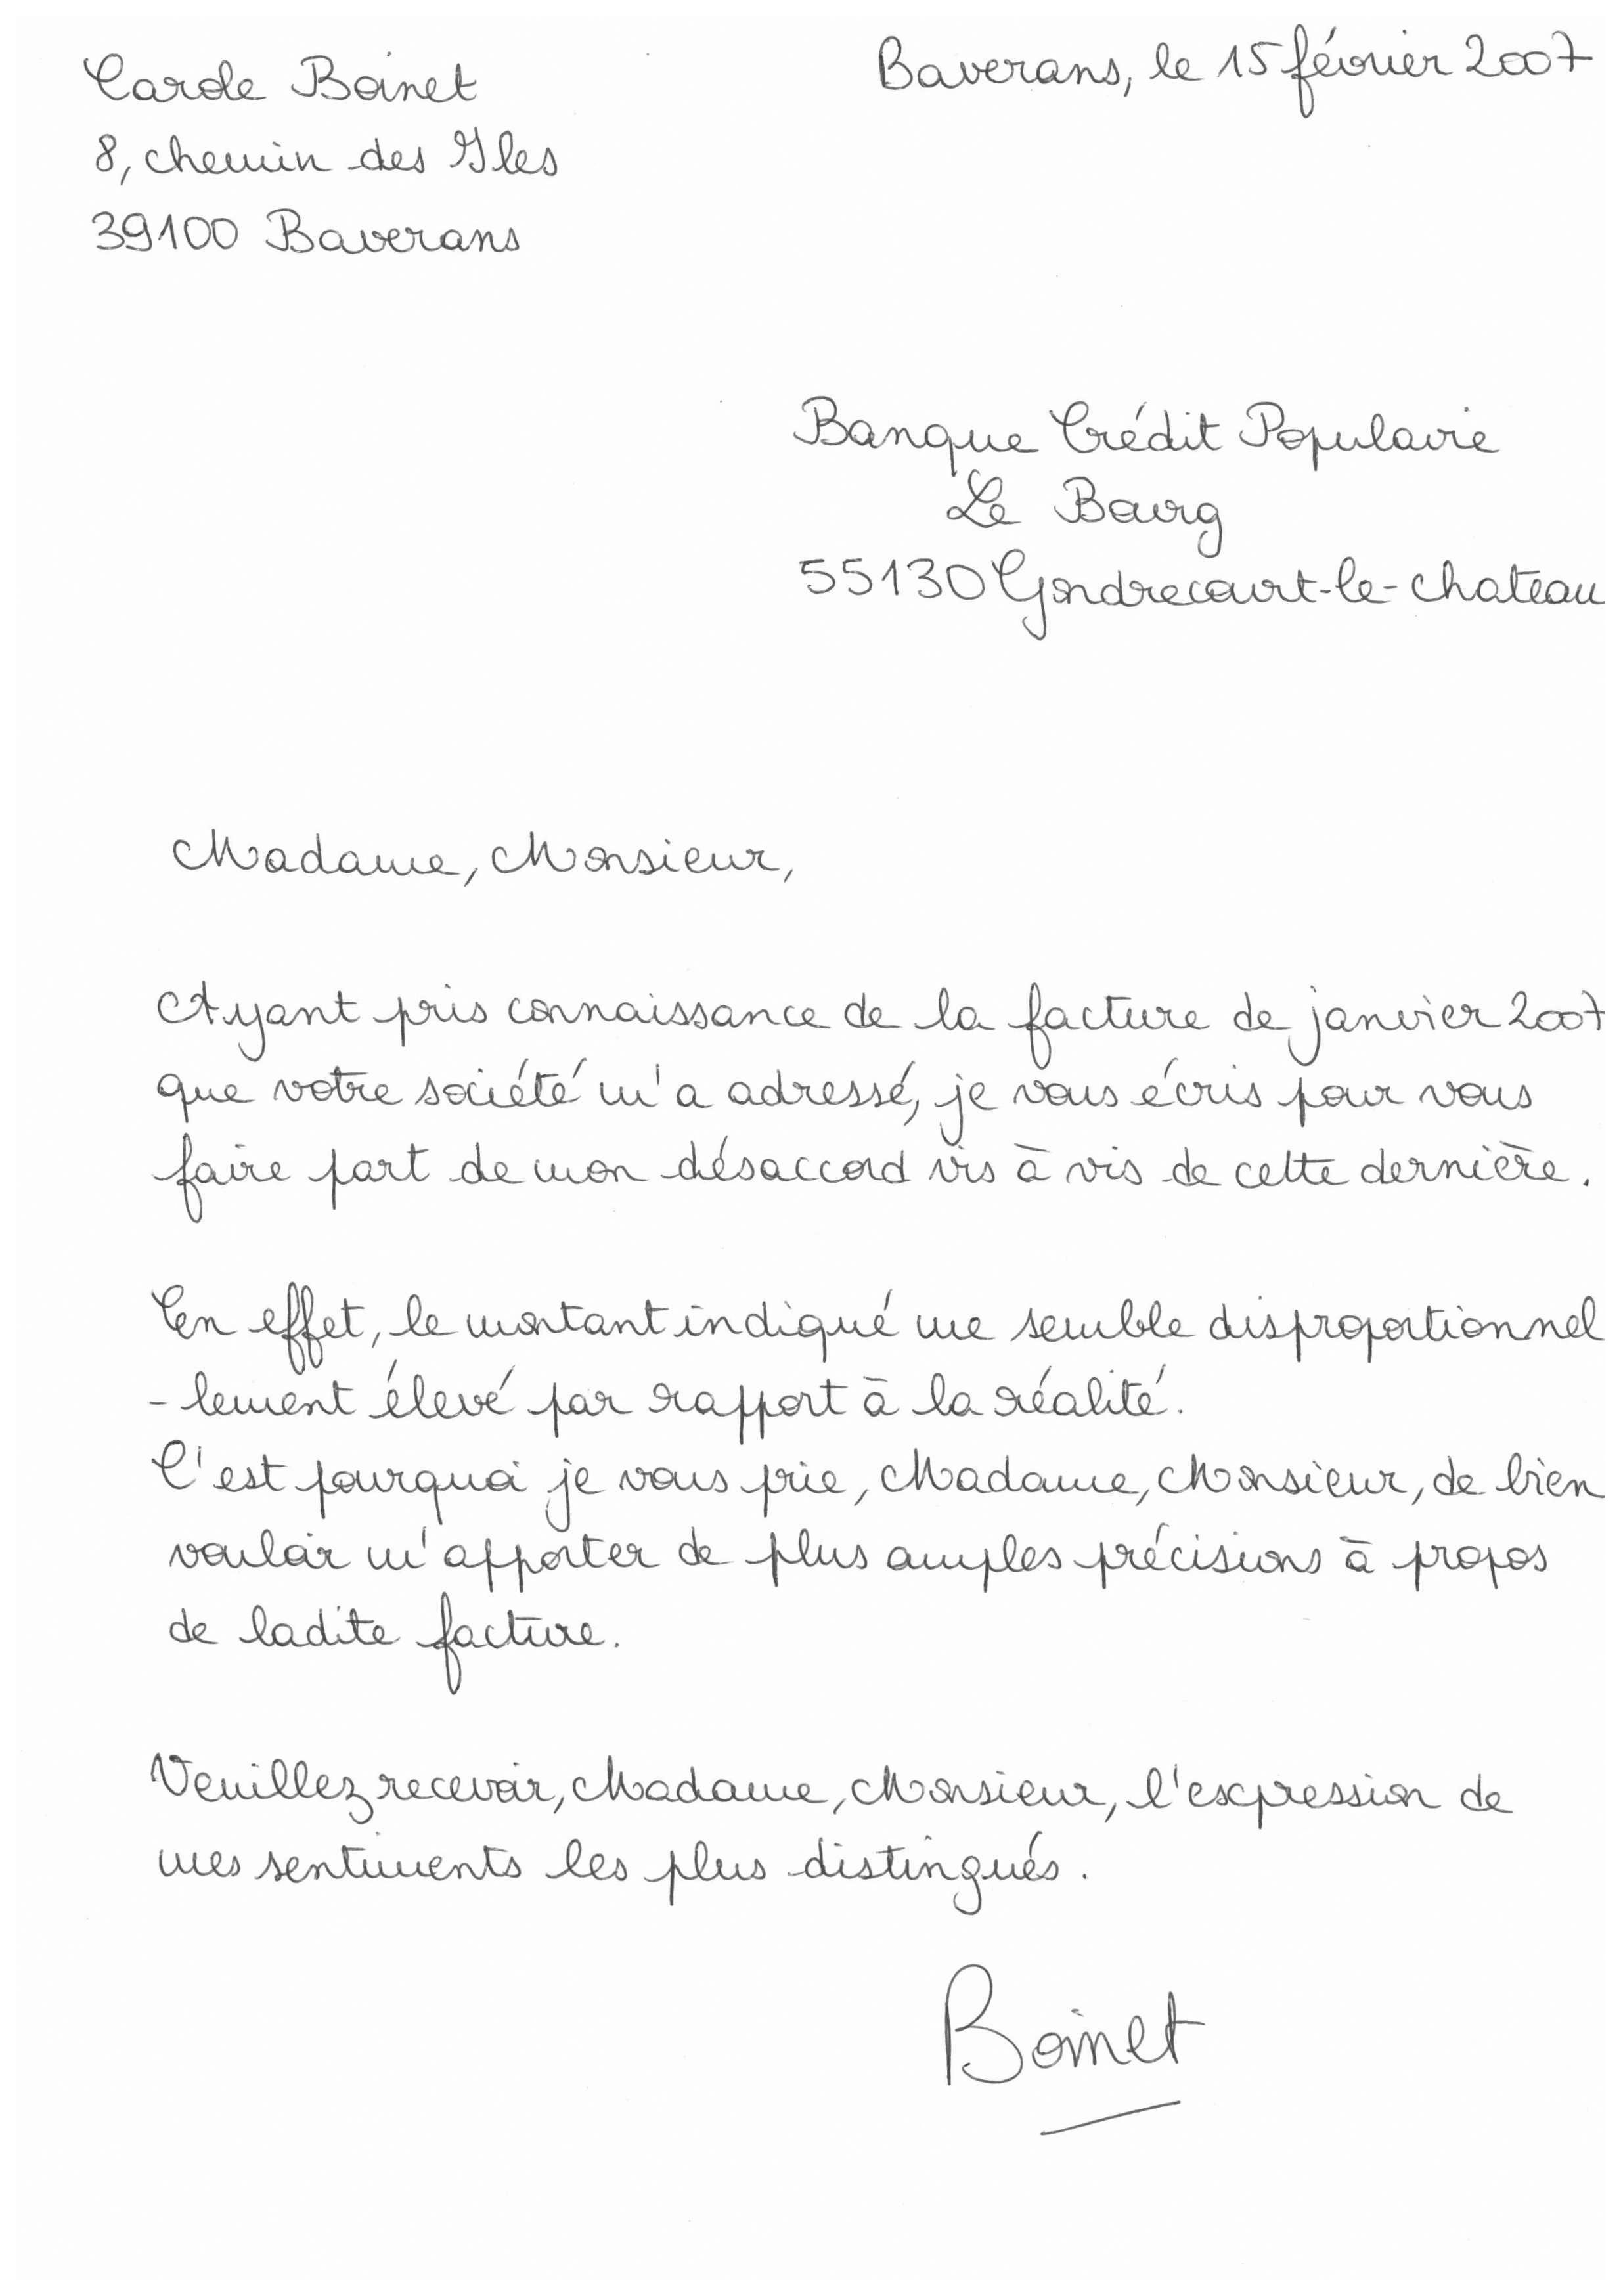 Carole Boinet
Baverans, le 15 février 2007
8, chemin des Iles
39100 Baverans
Banque Crédit Populaire
Le Bourg
55130 Gondrecourt-le-chateau
Madame, Monsieur,
Ayant pris connaissance de la facture de janvier 2007
que votre société m'a adressé, je vous écris pour vous
faire part de mon désaccord vis à vis de cette dernière.
En effet, le montant indiqué me semble disproportionnel
-lement élevé par rapport à la réalité.
C'est pourquoi je vous prie, Madame, Monsieur, de bien
vouloir m'apporter de plus amples précisions à propos
de ladite facture.
Veuillez recevoir, Madame, Monsieur, l'expression de
mes sentiments les plus distingués.
Boinet